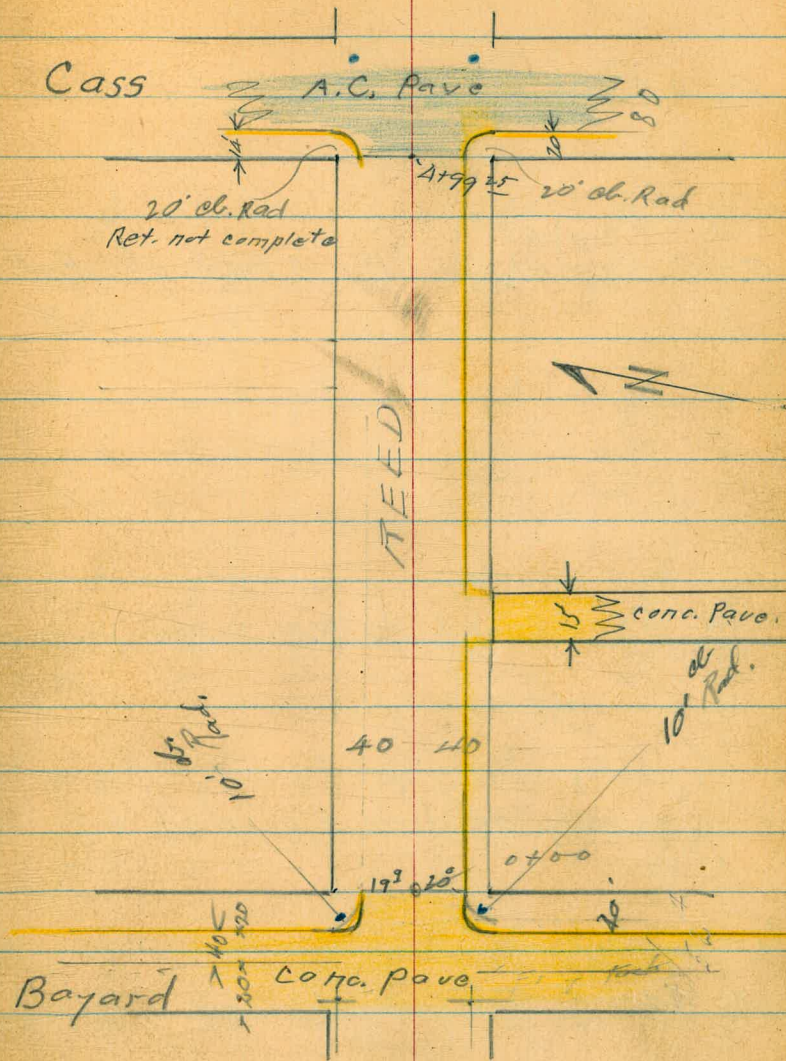 Cass
A.C. Pave
80
14'
20'
4+99 25
20' cb. Rad
Ret. not complete
20' cb. Rad
N
REED
15'
conc. Pave.
10' cb
Rad.
cb.
Rad.
10'
40 40
0+00
19 9 20 0
20
40
20
20'
Conc. Pave
Bayard